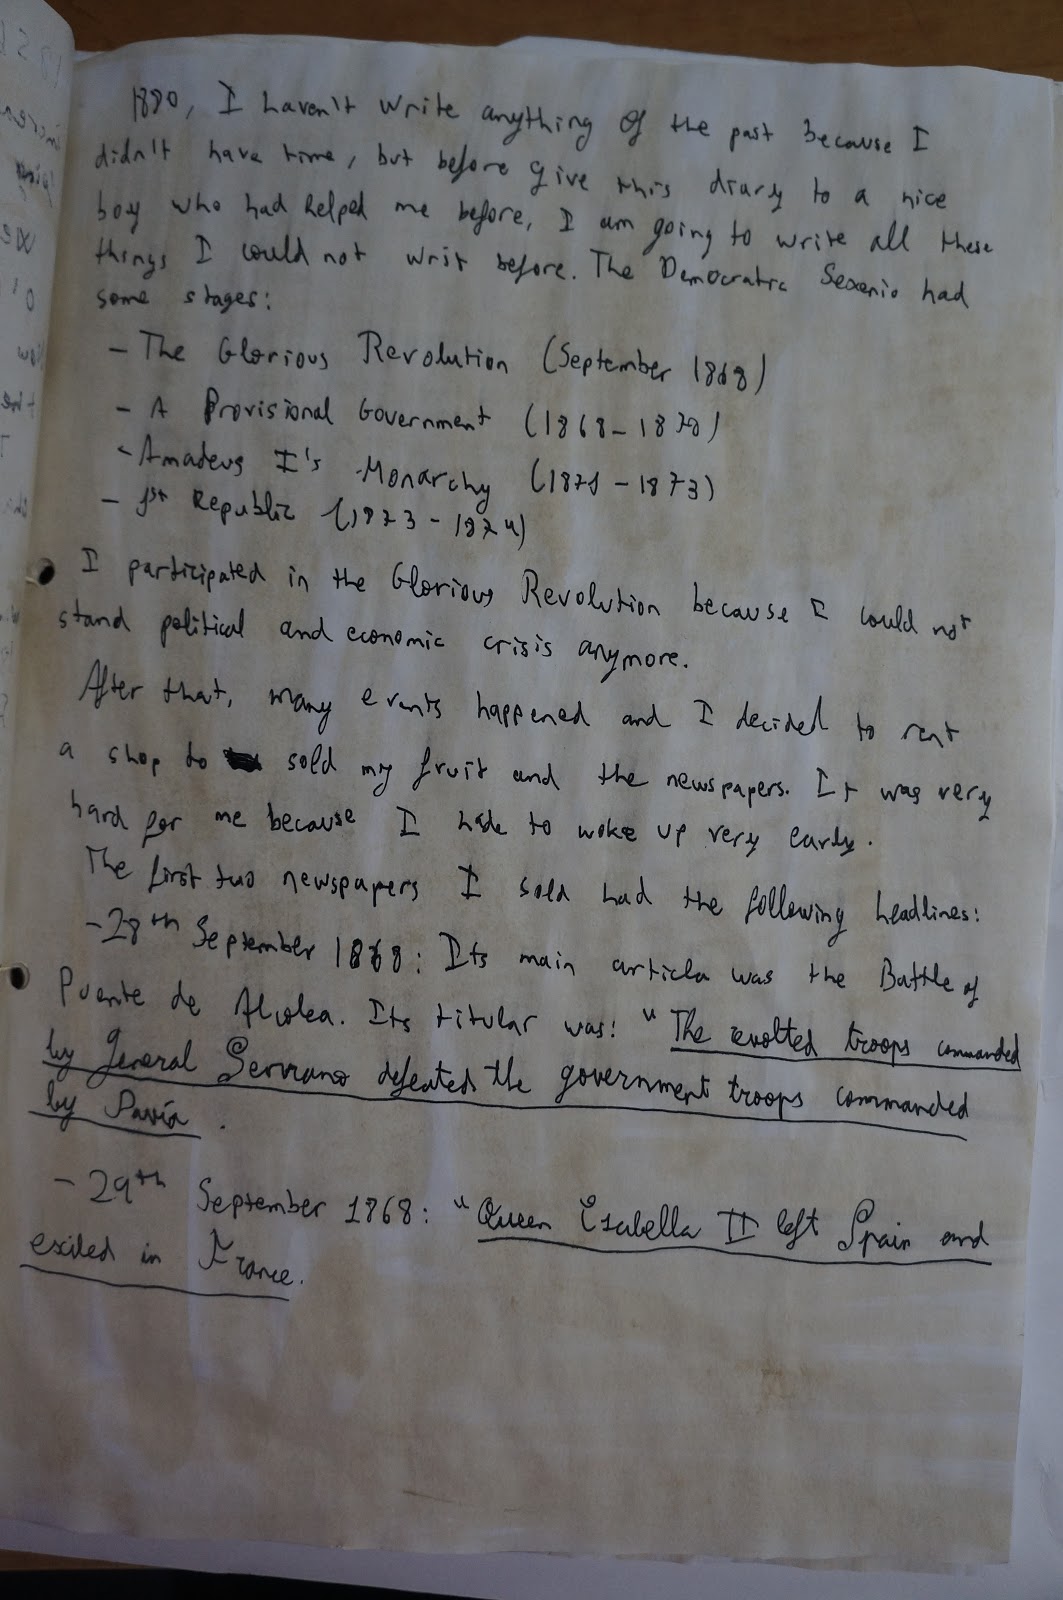 1880, I haven't write anything of the past because I
didn't have time, but before give this diary to a nice
boy who had helped me before, I am going to write all these
things I could not writ before. The Democratic Sexenio had
some stages:
- The Glorious Revolution (September 1868)
- A Provisional Government (1868-1870)
- Amadeus I's Monarchy (1871-1873)
- 1st Republic (1873-1874)
I participated in the Glorious Revolution because I could not
stand political and economic crisis anymore.
After that, many events happened and I decided to rent
a shop to sold my fruit and the newspapers. It was very
hard for me because I had to woke up very early.
The first two newspapers I sold had the following headlines:
-28th September 1868: Its main article was the Battle of
Puente de Alcolea. Its titular was: "The revolted troops commanded
by General Serrano defeated the government troops commanded
by Pavía.
-29th September 1868: "Queen Isabella II left Spain and
exiled in France.